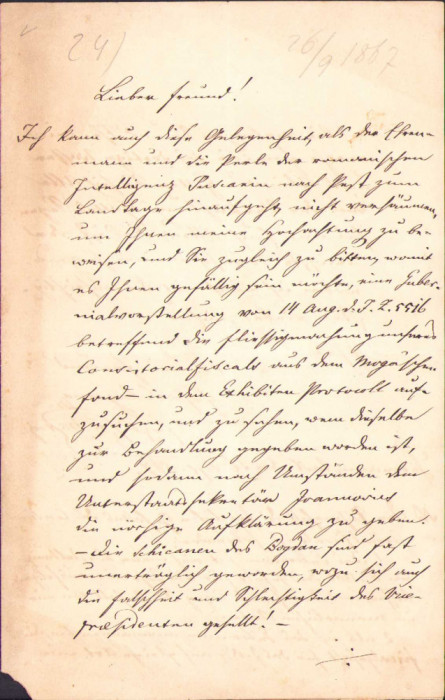 24)
26/9 1867
Lieber Freund!
Ich kann auch diese Gelegenheit, als der Ehren-
mann und die Perle der romanischen
Intelligenz Puscariu nach Pest zum
Landtage hinaufgeht, nicht versäumen,
um Ihnen meine Hochachtung zu be-
weisen, und Sie zugleich zu bitten, womit
es Ihnen gefällig sein möchte, eine Guber-
nialvorstellung von 14 Aug. d. J. Z. 5516
betreffend die Flüssigmachung unseres
Consistorialfiscals aus dem Moga'schen
fond – in dem Exhibiten Protocoll auf-
zusuchen, und zu sehen, wem dieselbe
zur Behandlung gegeben worden ist,
und sodann nach Umständen dem
Unterstaatssekretär Joannovics
die nöthige Aufklärung zu geben.
– Die Schicanen des Bogdan sind fast
unerträglich geworden, wozu sich auch
die Falschheit und Schlechtigkeit des Vice-
praesidenten gesellt! –